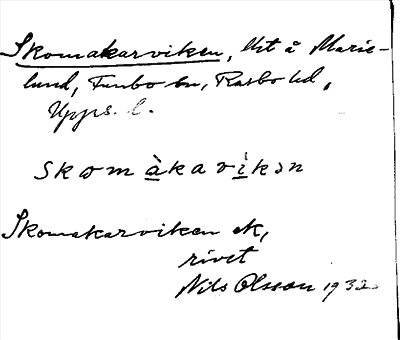 Skomakarviken, lht å Marie-
lund, Funbo sn, Rasbo hd,
Upps. l.
skomàkavìkən
Skomakarviken ek,
rivet
Nils Olsson 1932.